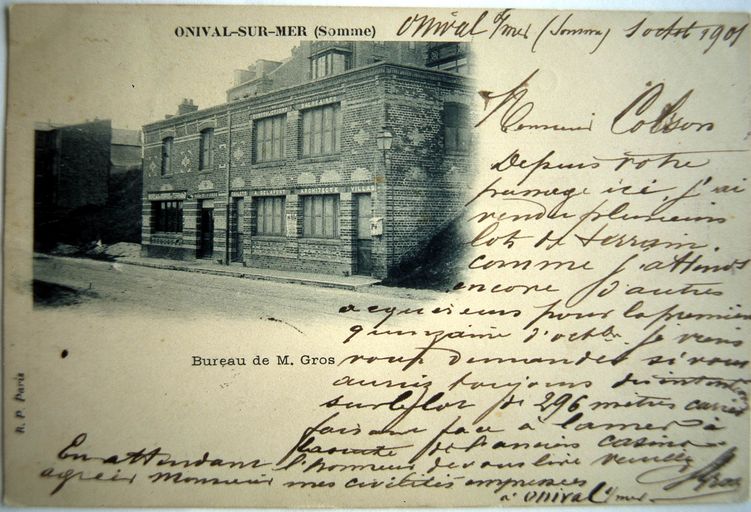 ONIVAL-SUR-MER (Somme)
Onival s/mer (Somme) 1 octob 1901
Monsieur Colson
Depuis votre
passage ici, j'ai
vendu plusieurs
lots de terrain.
comme j'attends
encore d'autres
acquéreurs pour la première
quinzaine d'octbre je viens
vous demander si vous
auriez toujours des intentions
sur le lot de 296 mètres carrés
faisant face à la mer à
de l'ancien casino
En attendant l'honneur de vous lire veuillez
agréer Monsieur mes civilités empressées
Gros
à onival s/mer
ARCHITECTE
VILLAS
A. DELAPORTE
Bureau de M. Gros
R. P. Paris